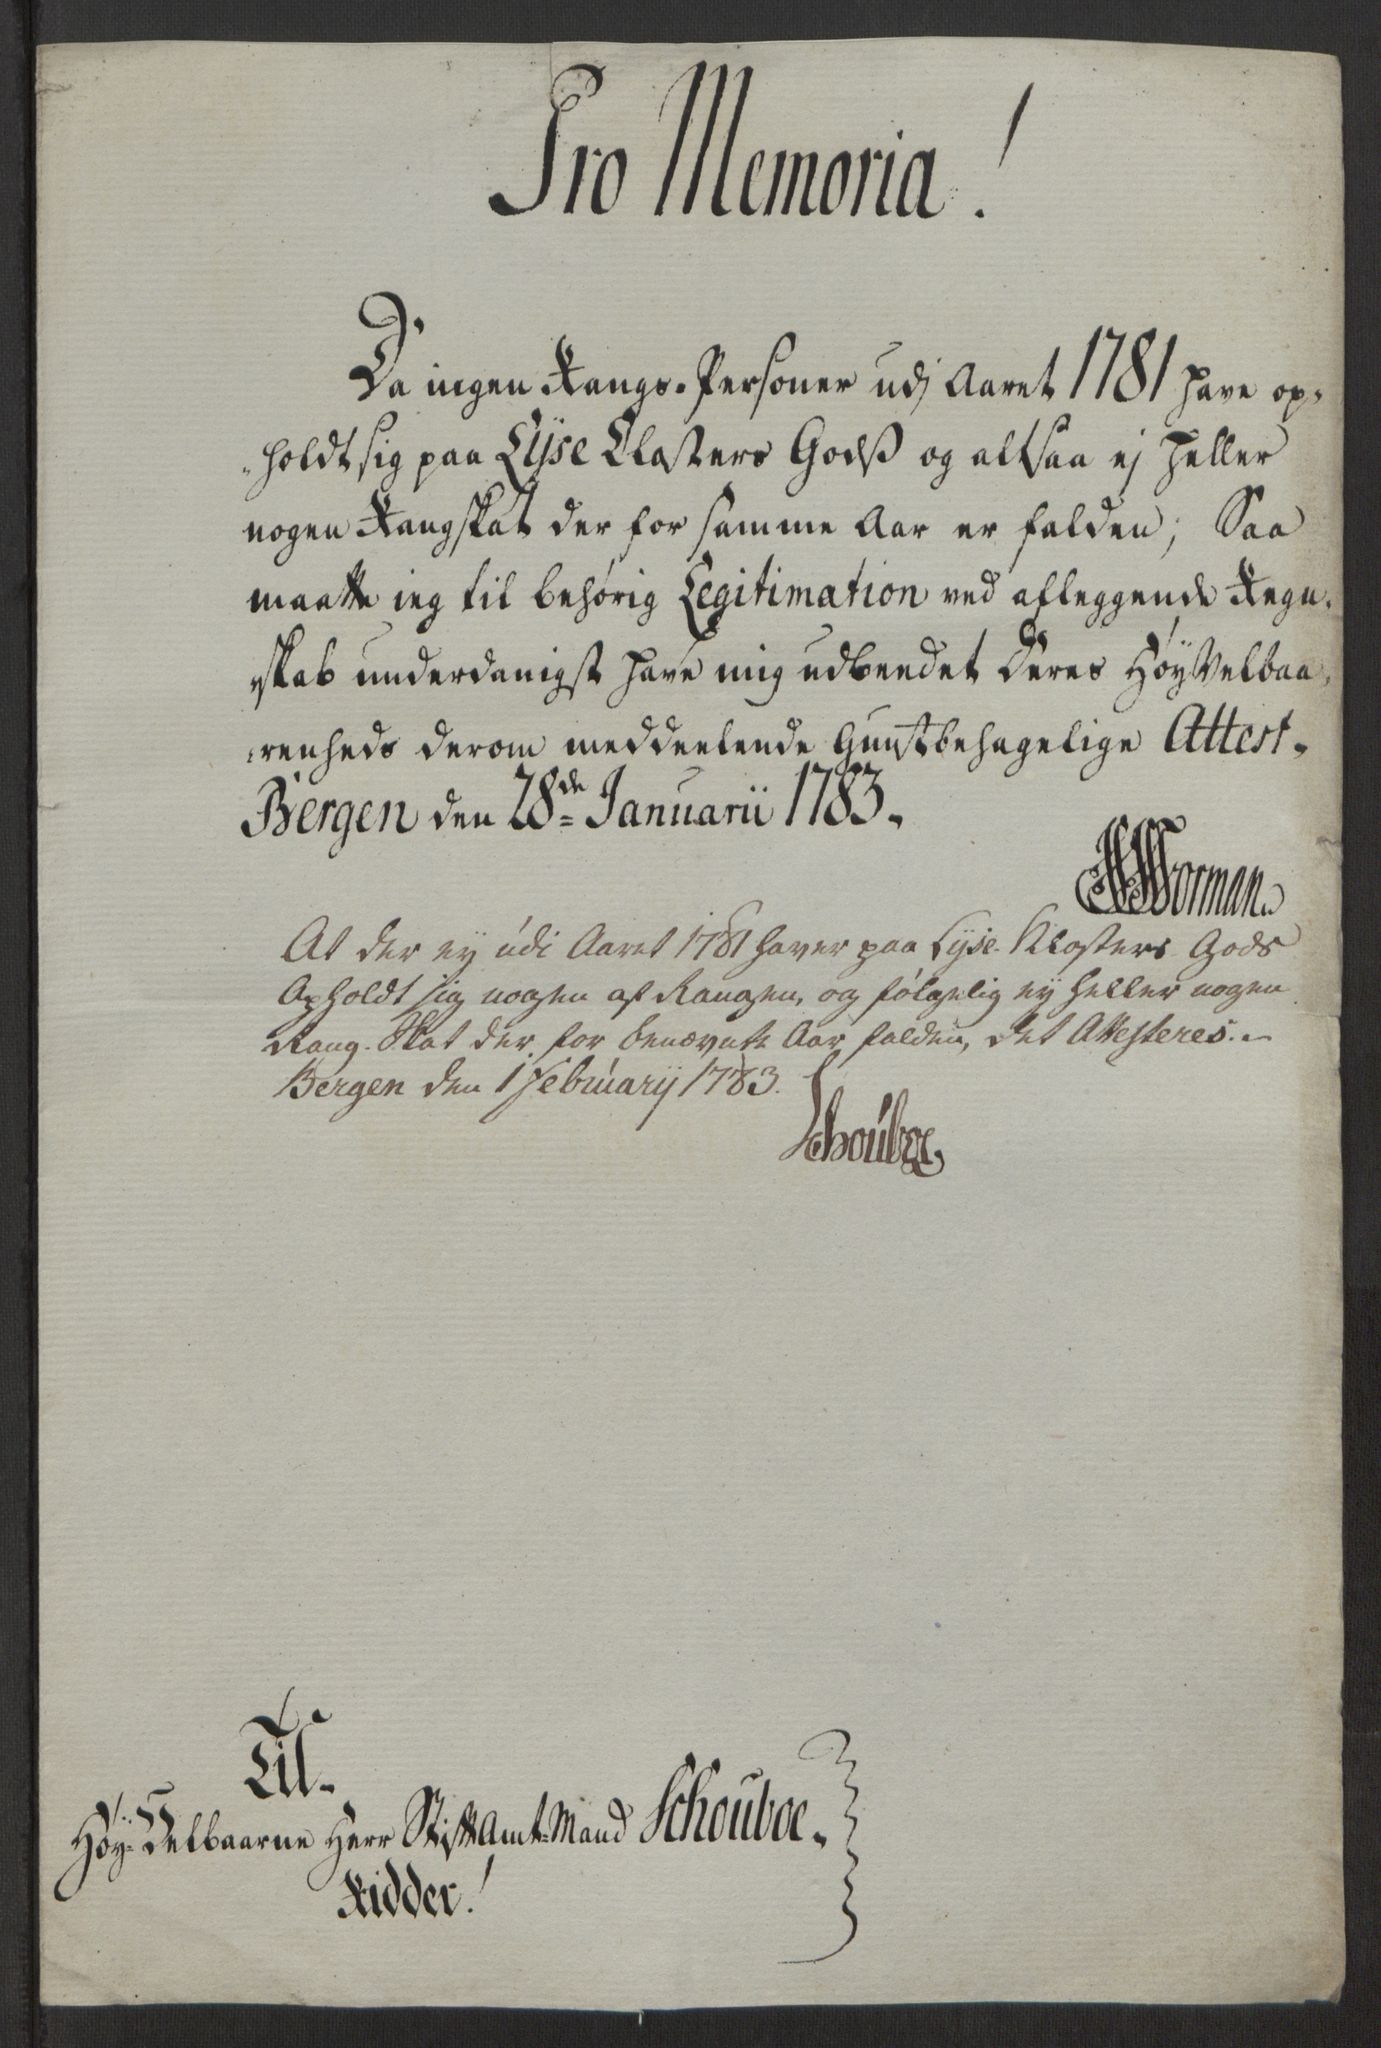 Pro Memoria!
Da ingen Rangs-Personer udj Aaret 1781 have op-
-holdt sig paa Lyse Closters Godß og altsaa ej heller
nogen Rangskat der for samme Aar er falden; Saa
maatte ieg til behørig Legitimation ved aflæggende Regn-
skab underdanigst have mig udbeedet Deres HøyVelbaa-
-renheds derom meddeelende Gunstbehagelige Attest.
Bergen den 28de Januarii 1783.
Worman
At der ey udi Aaret 1781 haver paa Lyse Klosters Gods
Opholdt sig nogen af Rangen, og følgelig ey heller nogen
Rang-Skat der for benævnte Aar falden, det Attesteres.
Bergen den 1 Februarij 1783.
Schouboe.
Til
Høy-Velbaarne Herr StiftAmt-Mand Schouboe.
Ridder!